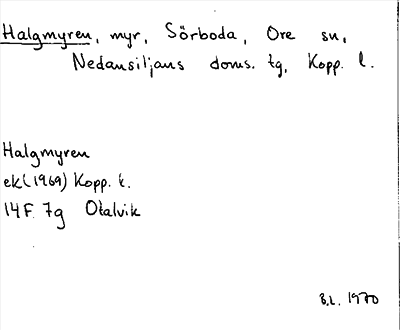 Halgmyren, myr, Sörboda, Ore sn,
Nedansiljans doms. tg, Kopp. l.
Halgmyren
ek (1969) Kopp. l.
14F 7g Otalvik
B.L. 1970